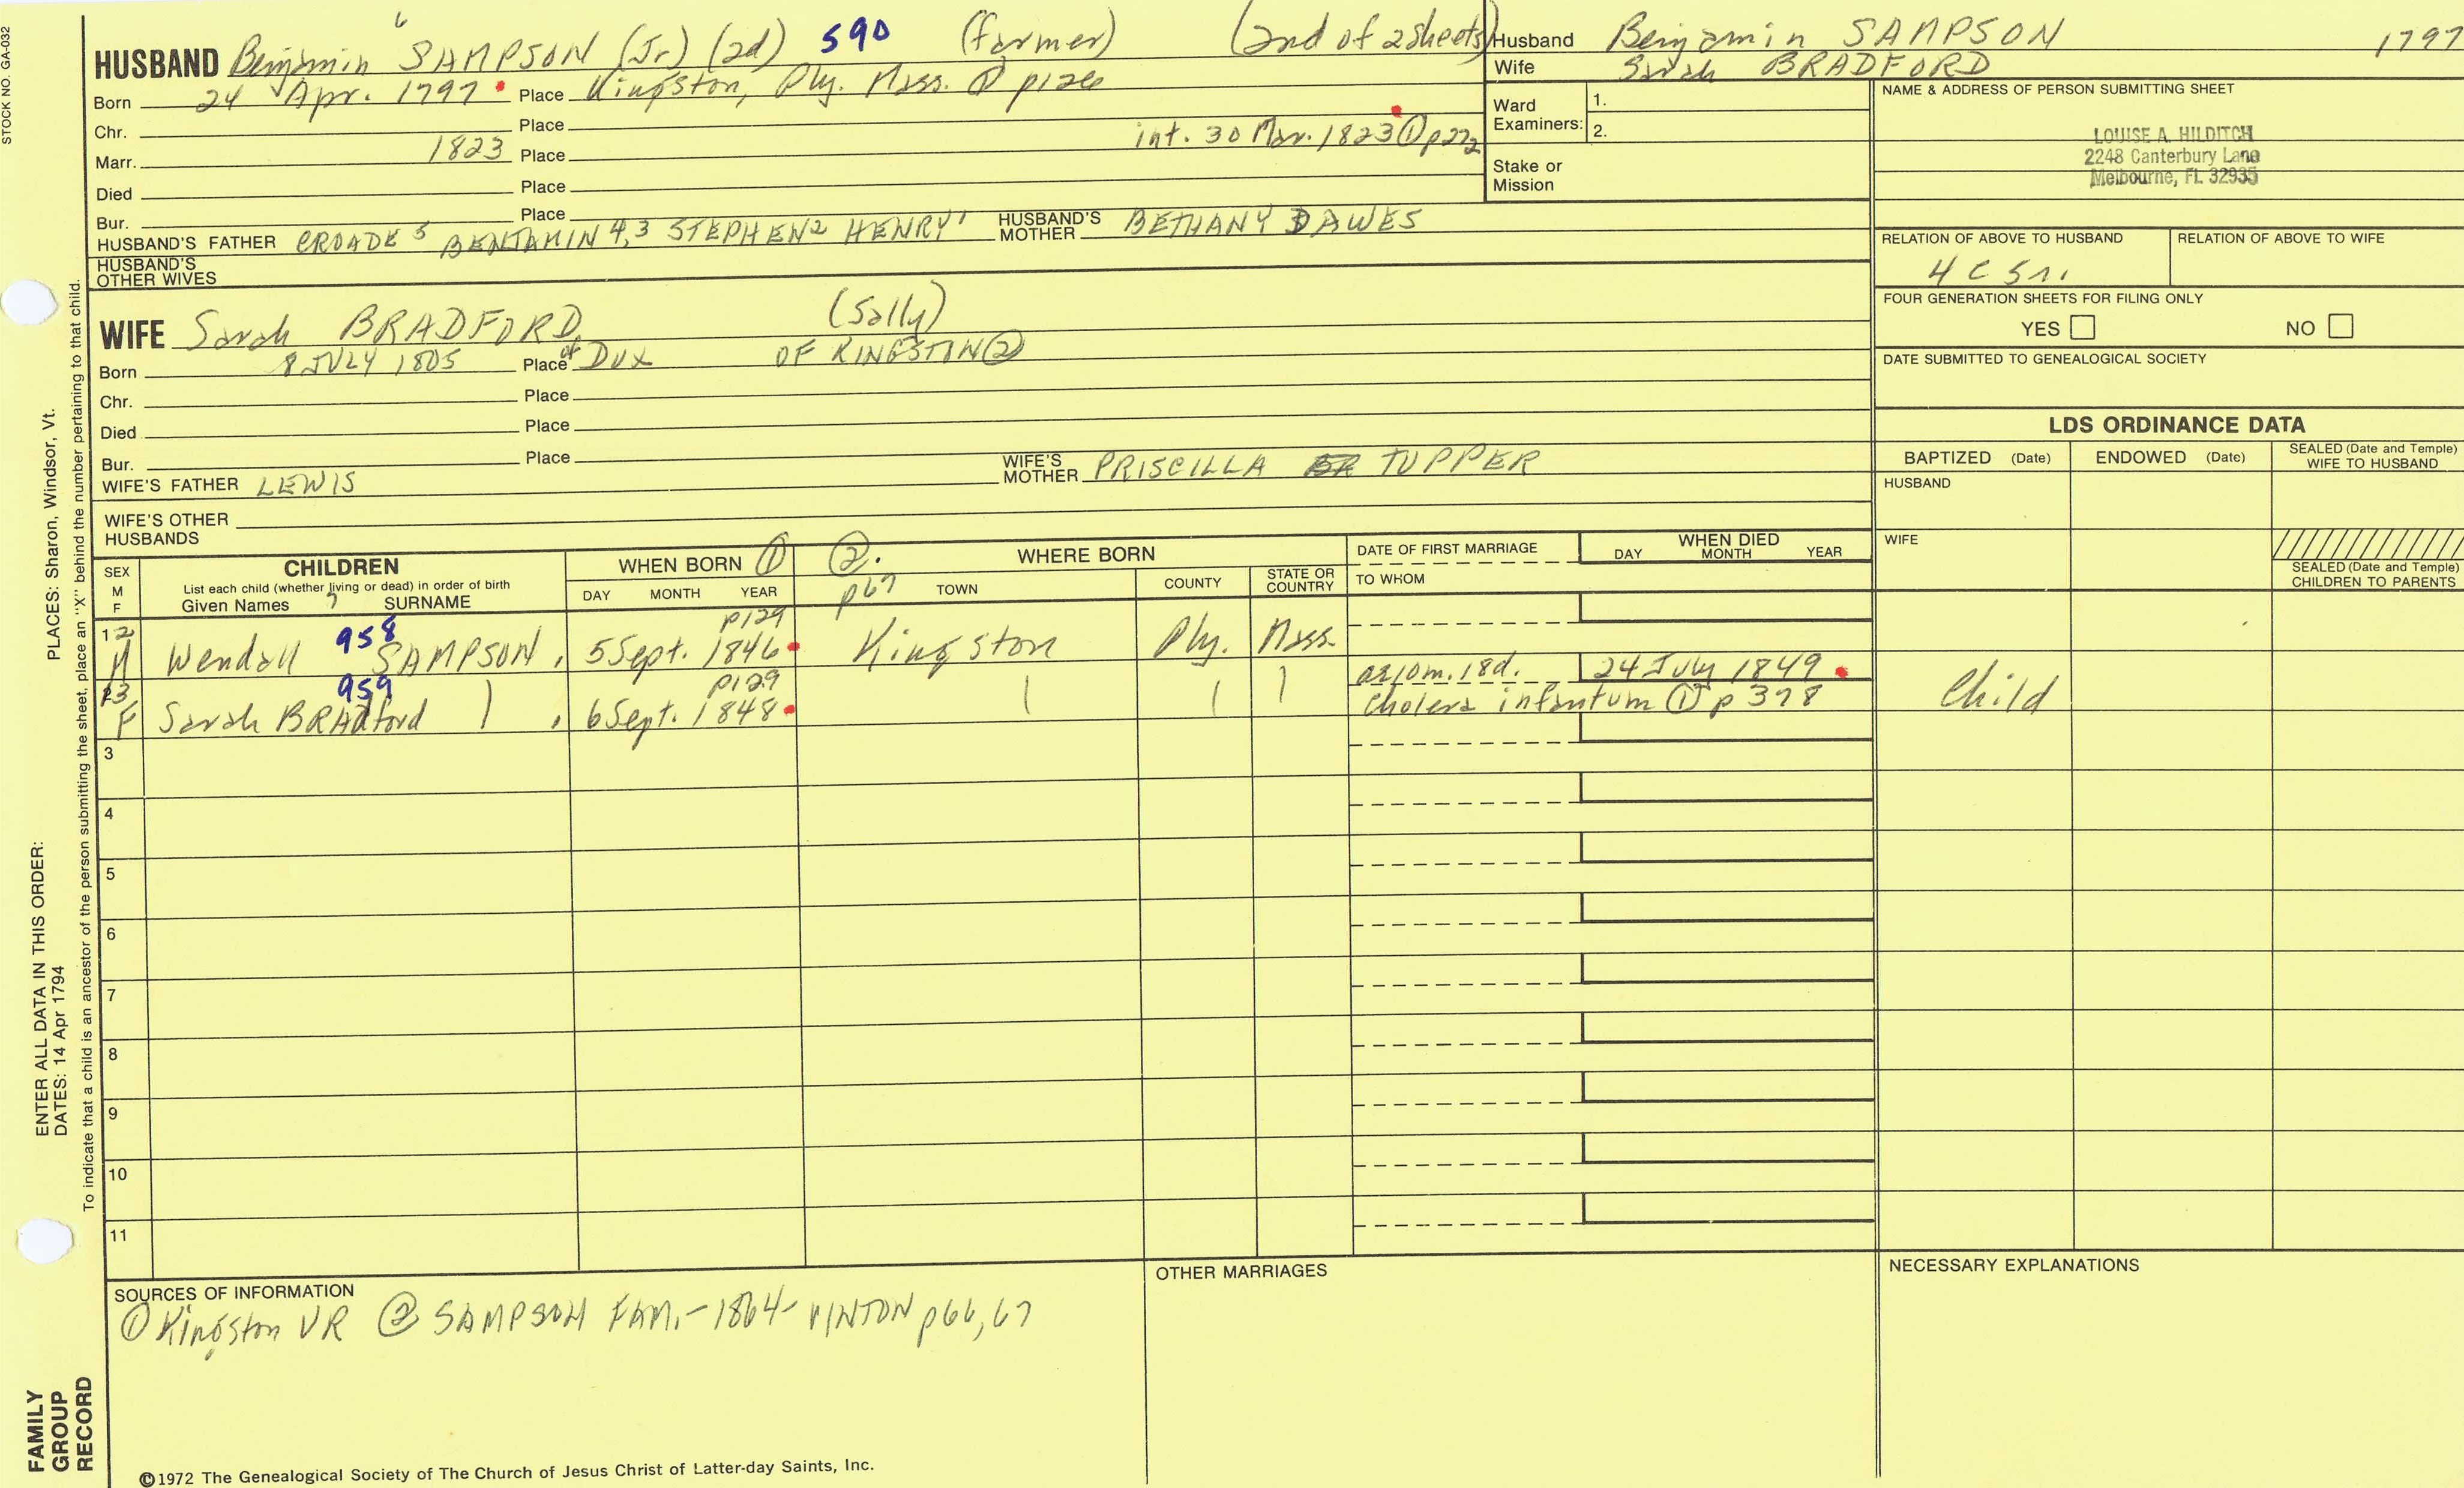 STOCK NO. GA-032
HUSBAND Benjamin 6 SAMPSON (Jr) (2d) 590 (farmer) (2nd of 2 sheets)
Born 24 Apr. 1797 Place Kingston, Ply. Mass. ① p126
Chr. Place
Marr. 1823 Place int. 30 Mar. 1823 ① p272
Died Place
Bur. Place
HUSBAND'S FATHER CROADE 5 BENJAMIN 4,3 STEPHEN 2 HENRY 1 HUSBAND'S MOTHER BETHANY DAWES
HUSBAND'S OTHER WIVES
Husband Benjamin SAMPSON 1797
Wife Sarah BRADFORD
Ward Examiners: 1.
2.
Stake or Mission
NAME & ADDRESS OF PERSON SUBMITTING SHEET
LOUISE A. HILDITCH
2248 Canterbury Lane
Melbourne, FL 32935
RELATION OF ABOVE TO HUSBAND RELATION OF ABOVE TO WIFE
4 C 5r.
FOUR GENERATION SHEETS FOR FILING ONLY
YES NO
DATE SUBMITTED TO GENEALOGICAL SOCIETY
WIFE Sarah BRADFORD (Sally)
Born 8 JULY 1805 Place of DUX OF KINGSTON ②
Chr. Place
Died Place
Bur. Place
WIFE'S FATHER LEWIS WIFE'S MOTHER PRISCILLA TUPPER
WIFE'S OTHER HUSBANDS
LDS ORDINANCE DATA
BAPTIZED (Date) ENDOWED (Date) SEALED (Date and Temple) WIFE TO HUSBAND
HUSBAND
WIFE
SEALED (Date and Temple) CHILDREN TO PARENTS
SEX M F
CHILDREN
List each child (whether living or dead) in order of birth
Given Names 7 SURNAME
WHEN BORN ①
DAY MONTH YEAR
② p67 WHERE BORN
TOWN COUNTY STATE OR COUNTRY
DATE OF FIRST MARRIAGE
TO WHOM
WHEN DIED
DAY MONTH YEAR
12 M Wendall 958 SAMPSON, 5 Sept. 1846 p129 Kingston Ply. Mass.
13 F Sarah BRADford 959 , 6 Sept. 1848 p129 ae 10m. 18d. 24 July 1849
Cholera infantum ① p 378 Child
3
4
5
6
7
8
9
10
11
SOURCES OF INFORMATION
① Kingston VR ② SAMPSON FAM. - 1864 - VINTON p66, 67
OTHER MARRIAGES
NECESSARY EXPLANATIONS
©1972 The Genealogical Society of The Church of Jesus Christ of Latter-day Saints, Inc.
PLACES: Sharon, Windsor, Vt.
ENTER ALL DATA IN THIS ORDER:
DATES: 14 Apr 1794
To indicate that a child is an ancestor of the person submitting the sheet, place an "X" behind the number pertaining to that child.
FAMILY GROUP RECORD